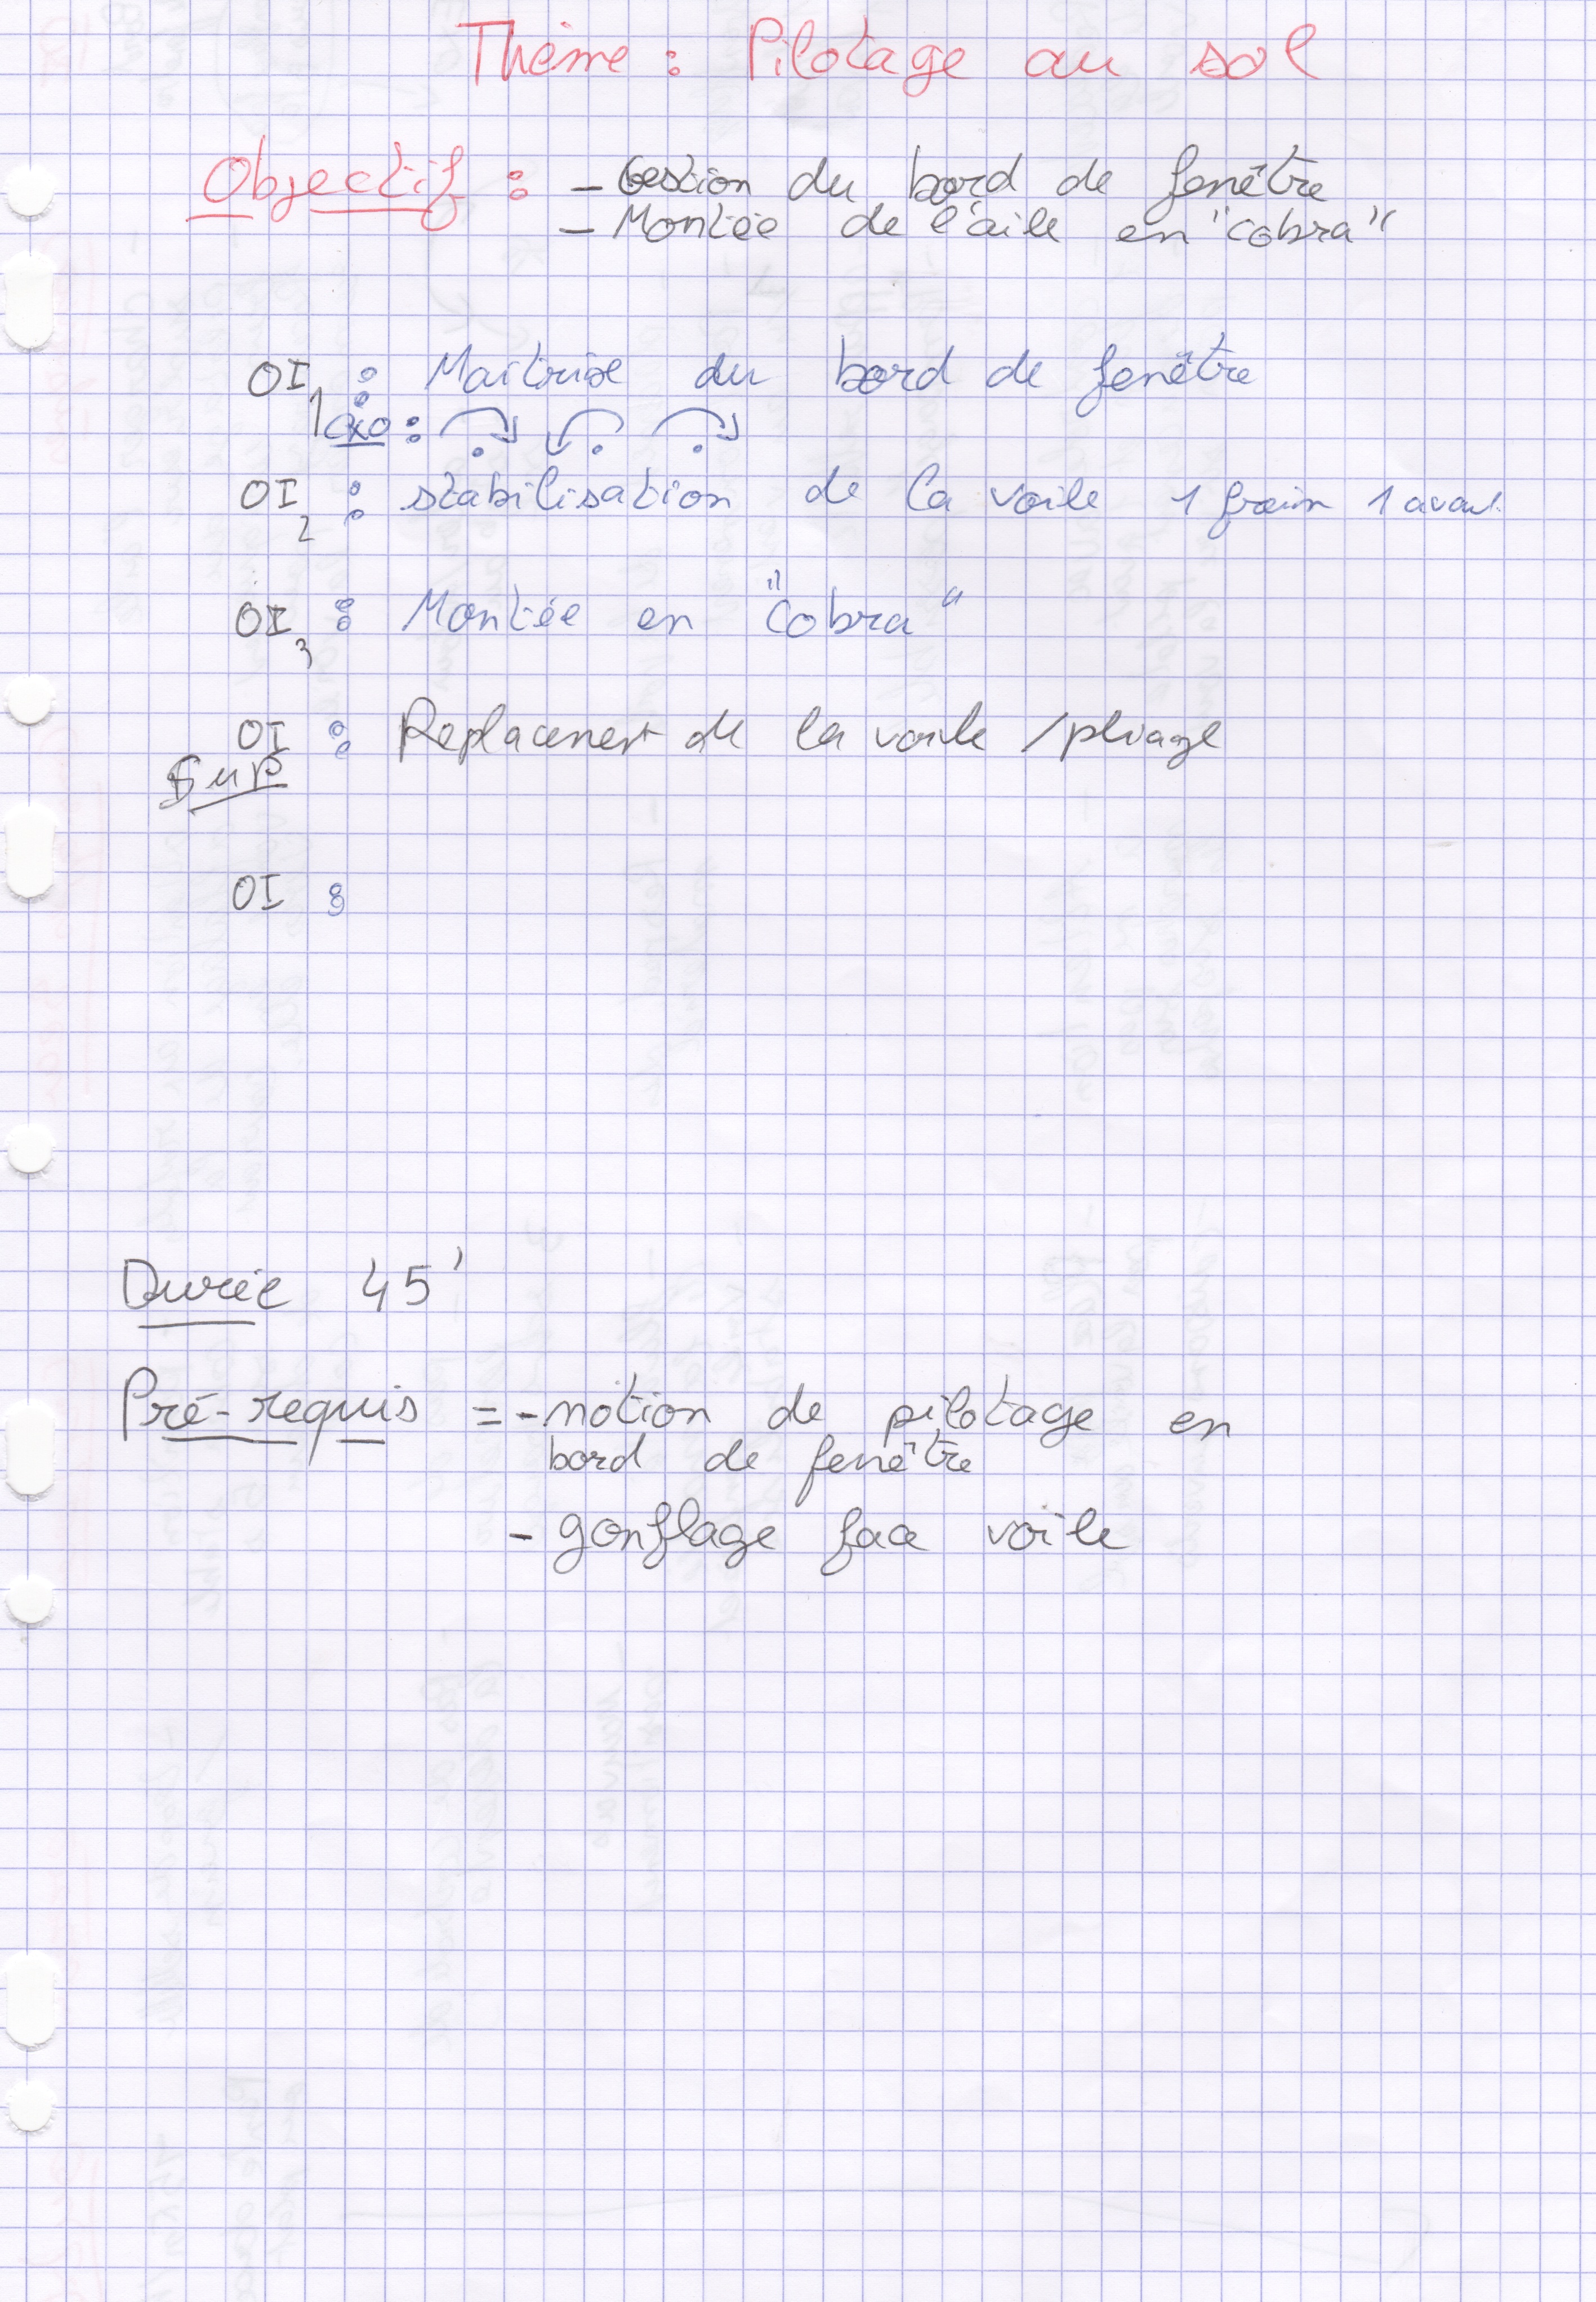 Thème : Pilotage au sol
Objectif : - Gestion du bord de fenêtre
- Montée de l'aile en "cobra"
OI1 : Maitrise du bord de fenêtre
exo :
OI2 : stabilisation de la voile 1 frein 1 avant
OI3 : Montée en "cobra"
OI : Replacement de la voile / pliage
Sup
OI :
Durée 45'
Pré-requis = - notion de pilotage en
bord de fenêtre
- gonflage face voile